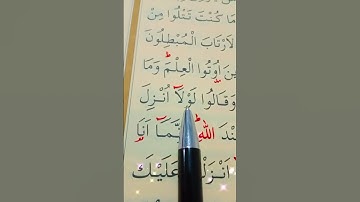 مَا كُنْتَ تَتْلُوا مِنْ
لَارْتَابَ الْمُبْطِلُونَ
ينَ اُوتُوا الْعِلْمَۜ وَمَا
وَقَالُوا لَوْلَٓا اُنْزِلَ
نْدَ اللّٰهِۜ نَّمَٓا اَنَا۬
اَنْزَلْ عَلَيْكَ